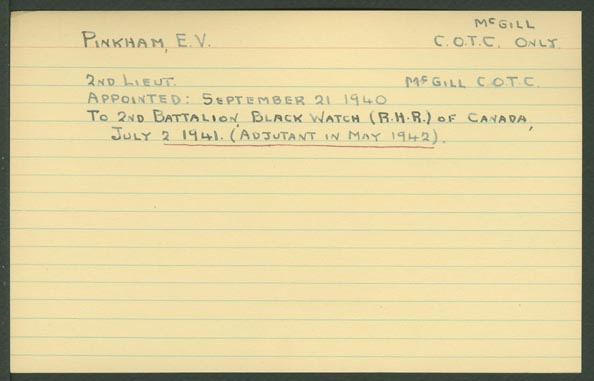 McGILL
PINKHAM, E.V. C.O.T.C. ONLY.
2ND LIEUT. McGILL C.O.T.C.
APPOINTED: SEPTEMBER 21 1940
TO 2ND BATTALION, BLACK WATCH (R.H.R.) OF CANADA,
JULY 2 1941. (ADJUTANT IN MAY 1942).